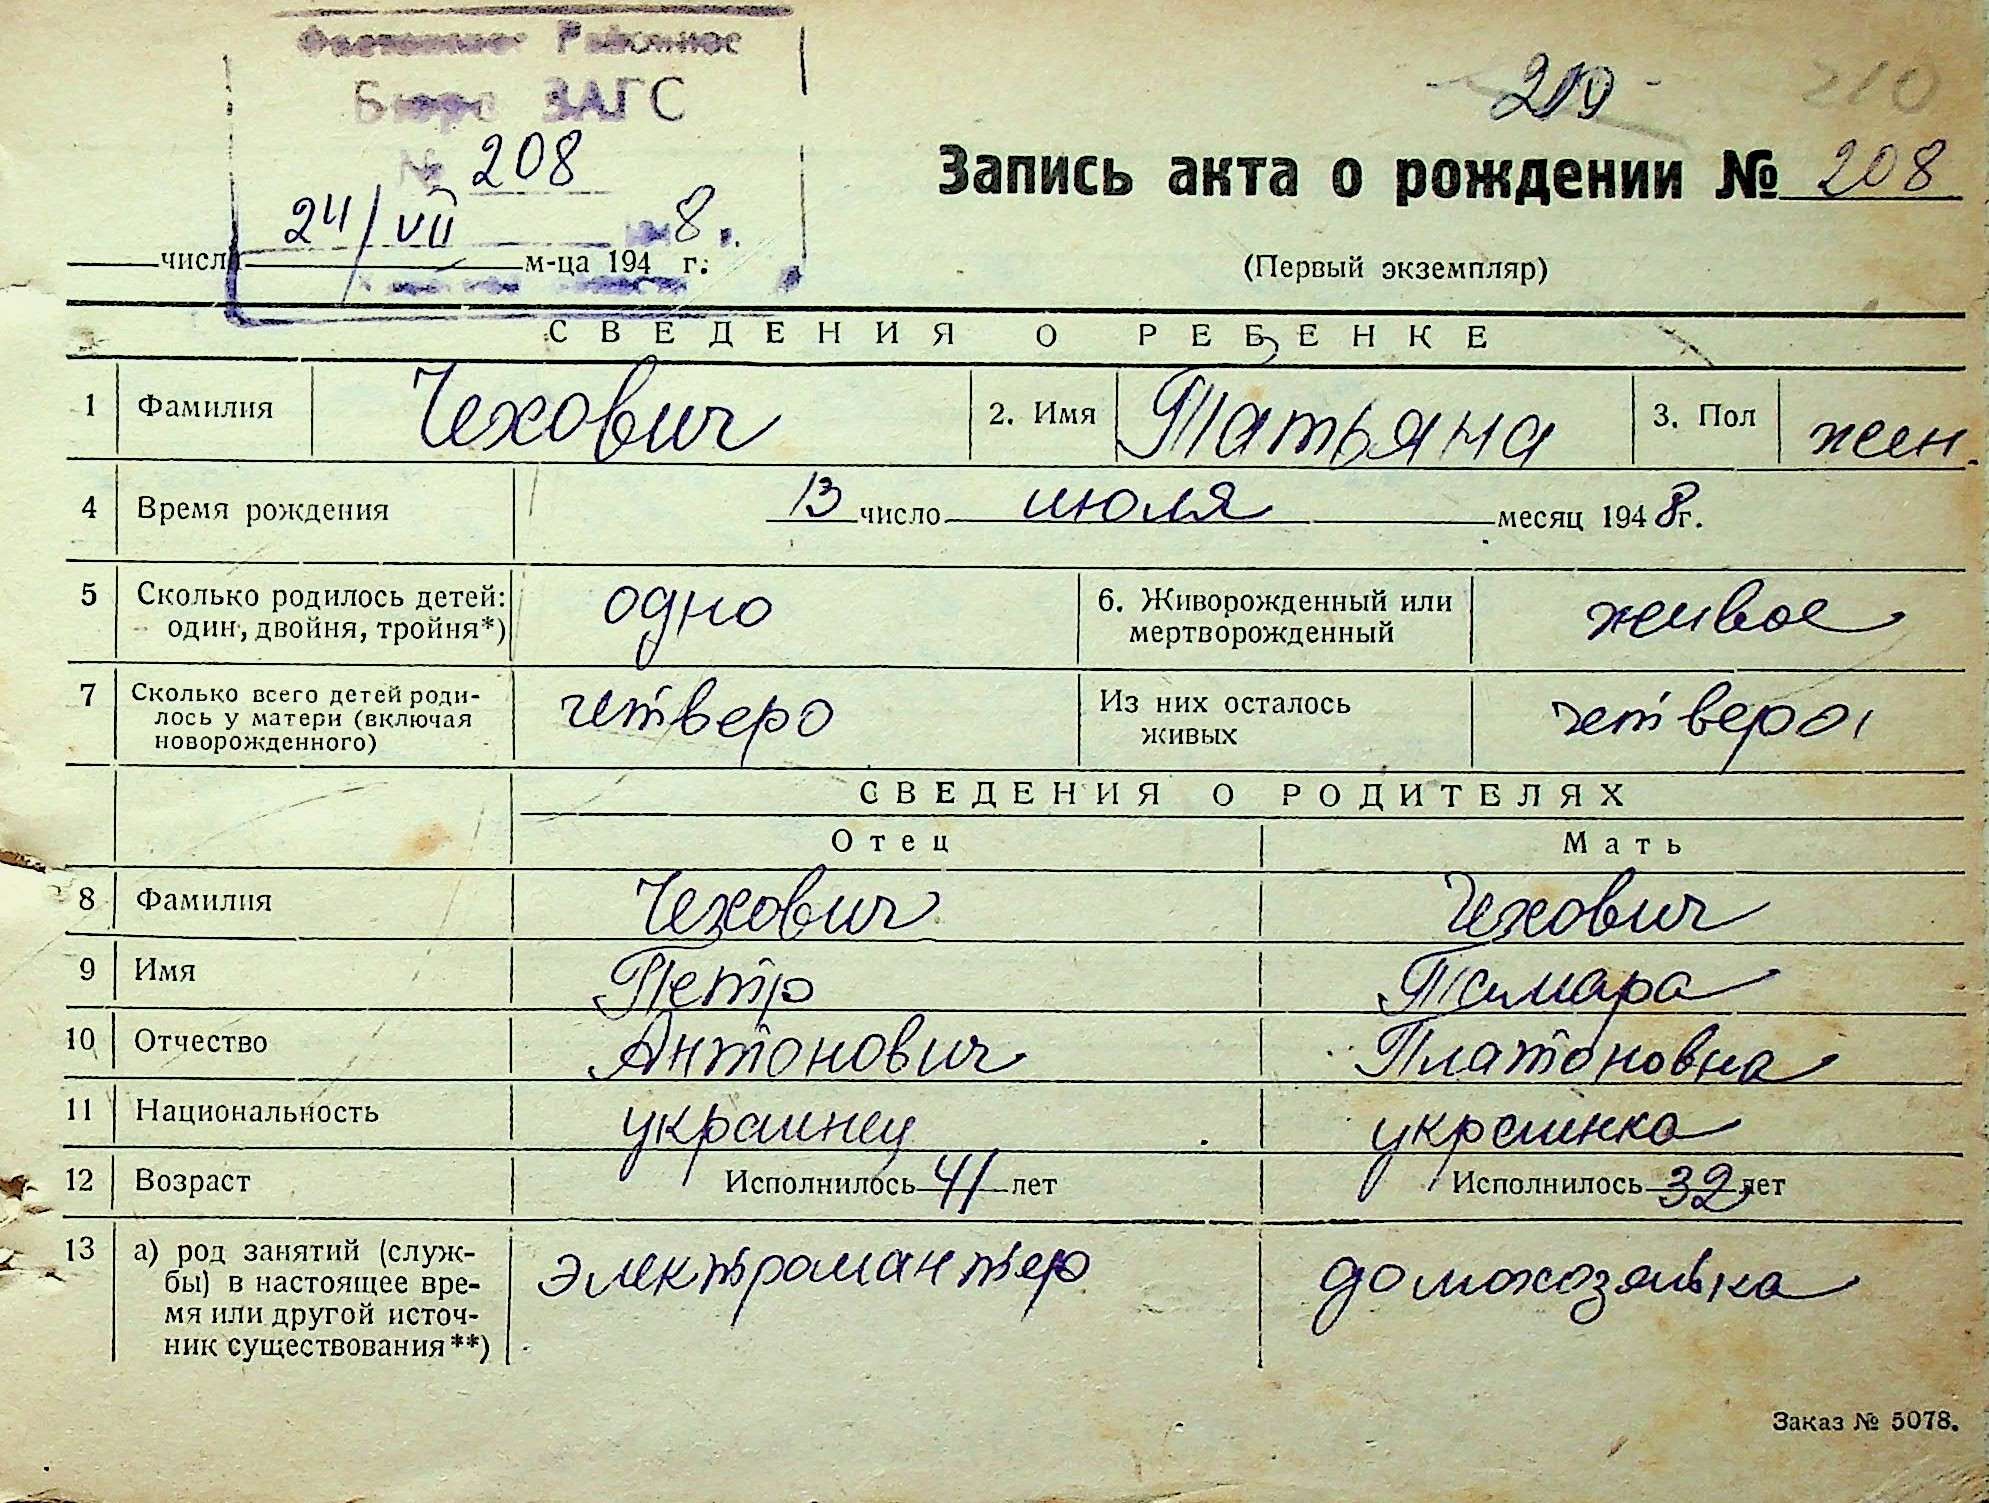 Районное
Бюро ЗАГС
№ 208
24/VII 1948 г.
числа м-ца 194 г.
210
Запись акта о рождении № 208
(Первый экземпляр)
СВЕДЕНИЯ О РЕБЕНКЕ
1 Фамилия Чехович 2. Имя Татьяна 3. Пол жен.
4 Время рождения 13 число июля месяц 1948 г.
5 Сколько родилось детей: один, двойня, тройня*) одно 6. Живорожденный или мертворожденный живое
7 Сколько всего детей родилось у матери (включая новорожденного) четверо Из них осталось живых четверо
СВЕДЕНИЯ О РОДИТЕЛЯХ
Отец Мать
8 Фамилия Чехович Чехович
9 Имя Петр Тамара
10 Отчество Антонович Платоновна
11 Национальность украинец украинка
12 Возраст Исполнилось 41 лет Исполнилось 32 лет
13 а) род занятий (служ-
бы) в настоящее вре-
мя или другой источ-
ник существования**) электромантер домохозяйка
Заказ № 5078.